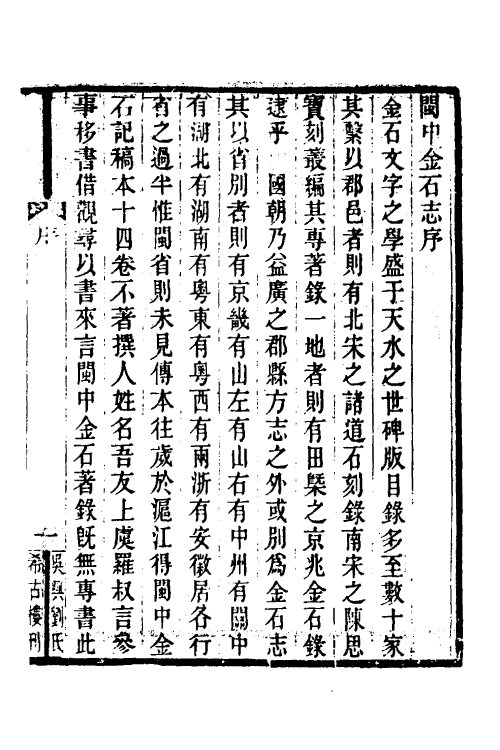 閩中金石志序
金石文字之學盛于天水之世碑版目錄多至數十家
其繫以郡邑者則有北宋之諸道石刻錄南宋之陳思
寶刻叢編其專著錄一地者則有田槩之京兆金石錄
逮乎　國朝乃益廣之郡縣方志之外或別爲金石志
其以省別者則有京畿有山左有山右有中州有關中
有湖北有湖南有粵東有粵西有兩浙有安徽居各行
省之過半惟閩省則未見傳本往歲於滬江得閩中金
石記稿本十四卷不著撰人姓名吾友上虞羅叔言參
事移書借觀尋以書來言閩中金石著錄旣無專書此
序
一
吳興劉氏
希古樓刊